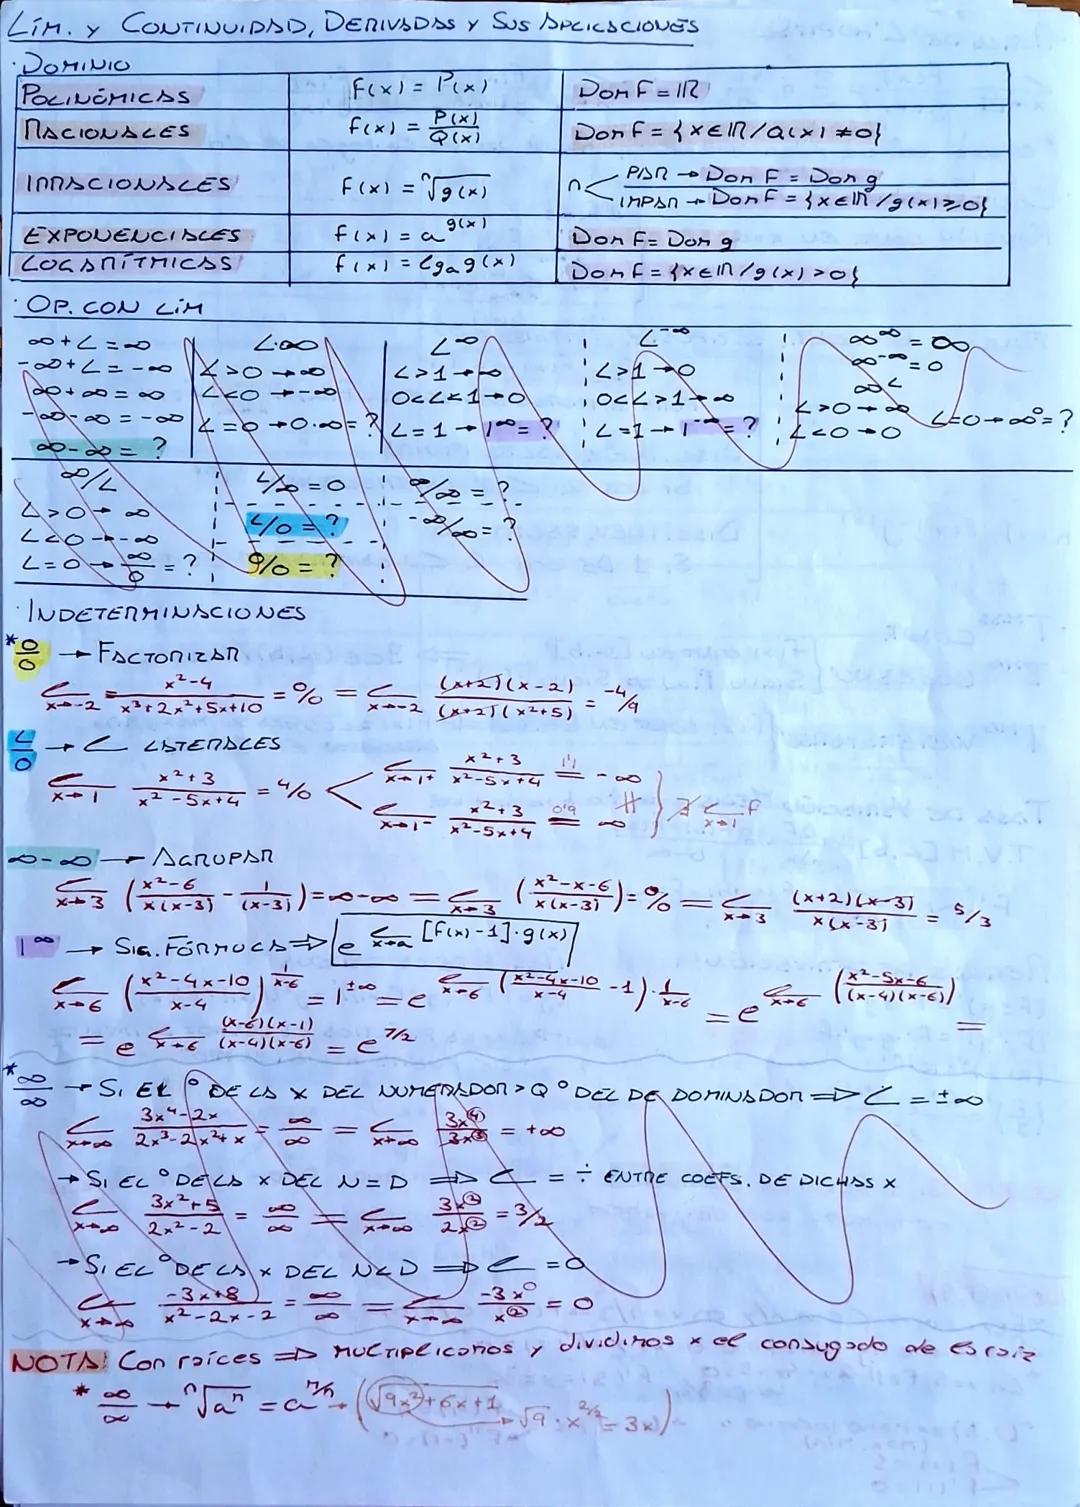 LÍM. Y CONTINUIDAD, DERIVADAS Y SUS APLICACIONES
· DOMINIO
POLINÓMICAS f(x) = P(x) Dom F = ℝ
RACIONALES f(x) = P(x)/Q(x) Dom F = {x∈ℝ / Q(x) ≠ 0}
IRRACIONALES f(x) = ⁿ√g(x) n < PAR → Dom F = Dom g
IMPAR → Dom F = {x∈ℝ / g(x) ≥ 0}
EXPONENCIALES f(x) = a^g(x) Dom F = Dom g
LOGARÍTMICAS f(x) = lg_a g(x) Dom F = {x∈ℝ / g(x) > 0}
· OP. CON LÍM
∞+L = ∞ L·∞ L^∞ L^-∞ ∞^∞ = ∞
-∞+L = -∞ L>0 → ∞ L>1 → ∞ L>1 → 0 ∞^-∞ = 0
∞+∞ = ∞ L<0 → -∞ 0<L<1 → 0 0<L>1 → ∞ ∞^L
-∞-∞ = -∞ L=0 → 0·∞ = ? L=1 → 1^∞ = ? L=1 → 1^-∞ = ? L>0 → ∞ L=0 → ∞^0 = ?
∞-∞ = ? L<0 → 0
∞/L L/∞ = 0 ∞/∞ = ?
L>0 → ∞ L/0 = ? -∞/∞ = ?
L<0 → -∞
L=0 → ∞/0 = ? 0/0 = ?
· INDETERMINACIONES
* 0/0 → FACTORIZAR
L x→-2 = (x²-4)/(x³+2x²+5x+10) = 0/0 = L x→-2 ((x+2)(x-2))/((x+2)(x²+5)) = -4/9
L/0 → L LATERALES
L x→1 (x²+3)/(x²-5x+4) = 4/0 < L x→1+ (x²+3)/(x²-5x+4) 1'1 = -∞
L x→1- (x²+3)/(x²-5x+4) 0'9 = ∞ } ∄ L x→1 F
∞-∞ → AGRUPAR
L x→3 ((x²-6)/(x(x-3)) - 1/(x-3)) = ∞-∞ = L x→3 ((x²-x-6)/(x(x-3))) = 0/0 = L x→3 ((x+2)(x-3))/(x(x-3)) = 5/3
1^∞ → SIG. FÓRMULA ⇒ e^(L x→a [f(x)-1]·g(x))
L x→6 ((x²-4x-10)/(x-4))^(1/(x-6)) = 1^±∞ = e^(L x→6 ((x²-4x-10)/(x-4) -1)·1/(x-6)) = e^(L x→6 ((x²-5x-6)/((x-4)(x-6)))) =
= e^(L x→6 ((x-6)(x-1))/((x-4)(x-6))) = e^7/2
* ∞/∞ → SI EL ° DE LA X DEL NUMERADOR > Q ° DEL DE DOMINADOR ⇒ L = ±∞
L x→∞ (3x⁴-2x)/(2x³-2x²+x) = ∞/∞ = L x→∞ 3x⁴/3x³ = +∞
→ SI EL ° DE LA X DEL N = D ⇒ L = ÷ ENTRE COEFS. DE DICHAS X
L x→∞ (3x²+5)/(2x²-2) = ∞/∞ = L x→∞ 3x²/2x² = 3/2
→ SI EL ° DE LA X DEL N<D ⇒ L = 0
L x→∞ (-3x+8)/(x²-2x-2) = ∞/∞ = L x→∞ -3x⁰/x² = 0
NOTA! Con raíces ⇒ MULTIPLICAMOS y dividimos x el conjugado de es raíz
* ∞/∞ → ⁿ√aⁿ = a^n/n → (√9x²+6x+1 → √9 · x^2/2 = 3x)